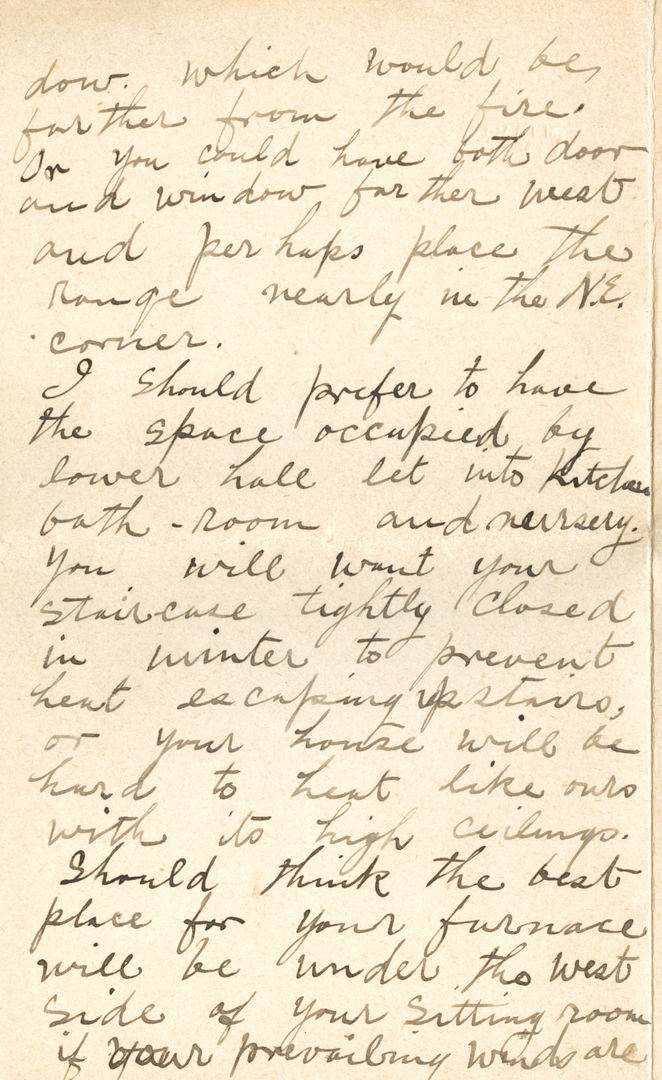 dow. which would be,
farther from the fire.
Or you could have both door
and window farther west
and perhaps place the
range nearly in the N.E.
corner.
I should prefer to have
the space occupied by
lower hall let into kitchen
bath-room and nursery.
You will want your
staircase tightly closed
in winter to prevent
heat escaping upstairs,
or your house will be
hard to heat like ours
with its high ceilings.
Should think the best
place for your furnace
will be under the west
side of your sitting room
if your prevailing winds are